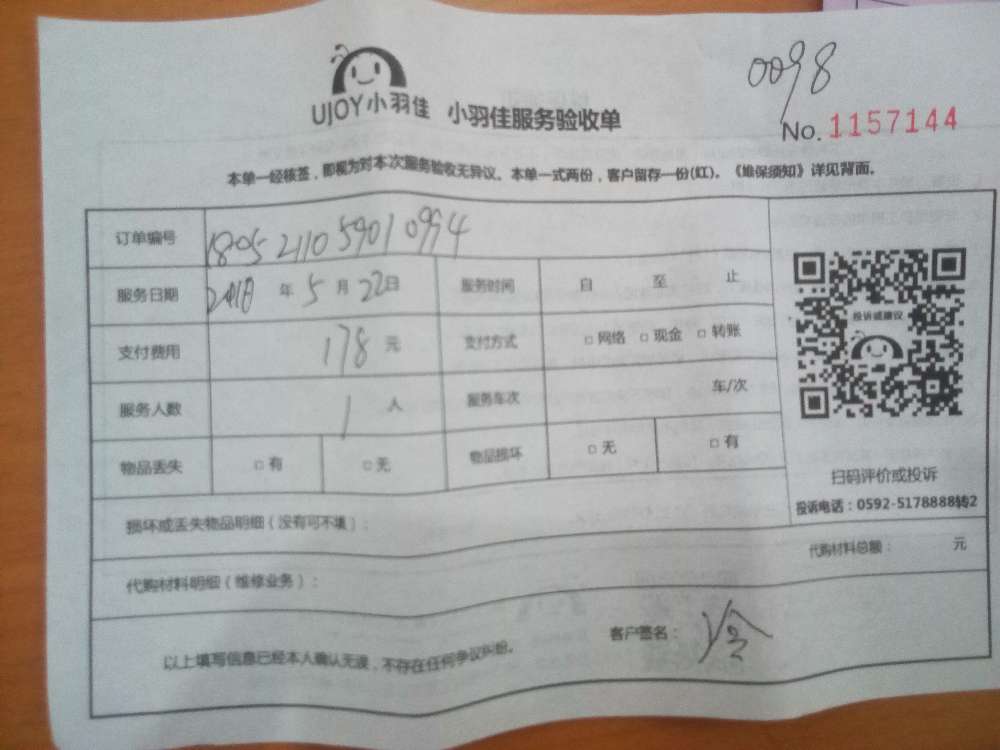 0098
UJOY小羽佳 小羽佳服务验收单
No. 1157144
本单一经核签，即视为对本次服务验收无异议。本单一式两份，客户留存一份(红)。《维保须知》详见背面。
订单编号 1805211059010994
服务日期 2018 年 5 月 22 日 服务时间 自 至 止
投诉或建议
支付费用 178 元 支付方式 □ 网络 □ 现金 □ 转账
服务人数 1 人 服务车次 车/次
物品丢失 □ 有 □ 无 物品损坏 □ 无 □ 有
扫码评价或投诉
投诉电话：0592-5178888转2
损坏或丢失物品明细（没有可不填）：
代购材料明细（维修业务）： 代购材料总额： 元
以上填写信息已经本人确认无误，不存在任何争议纠纷。 客户签名：